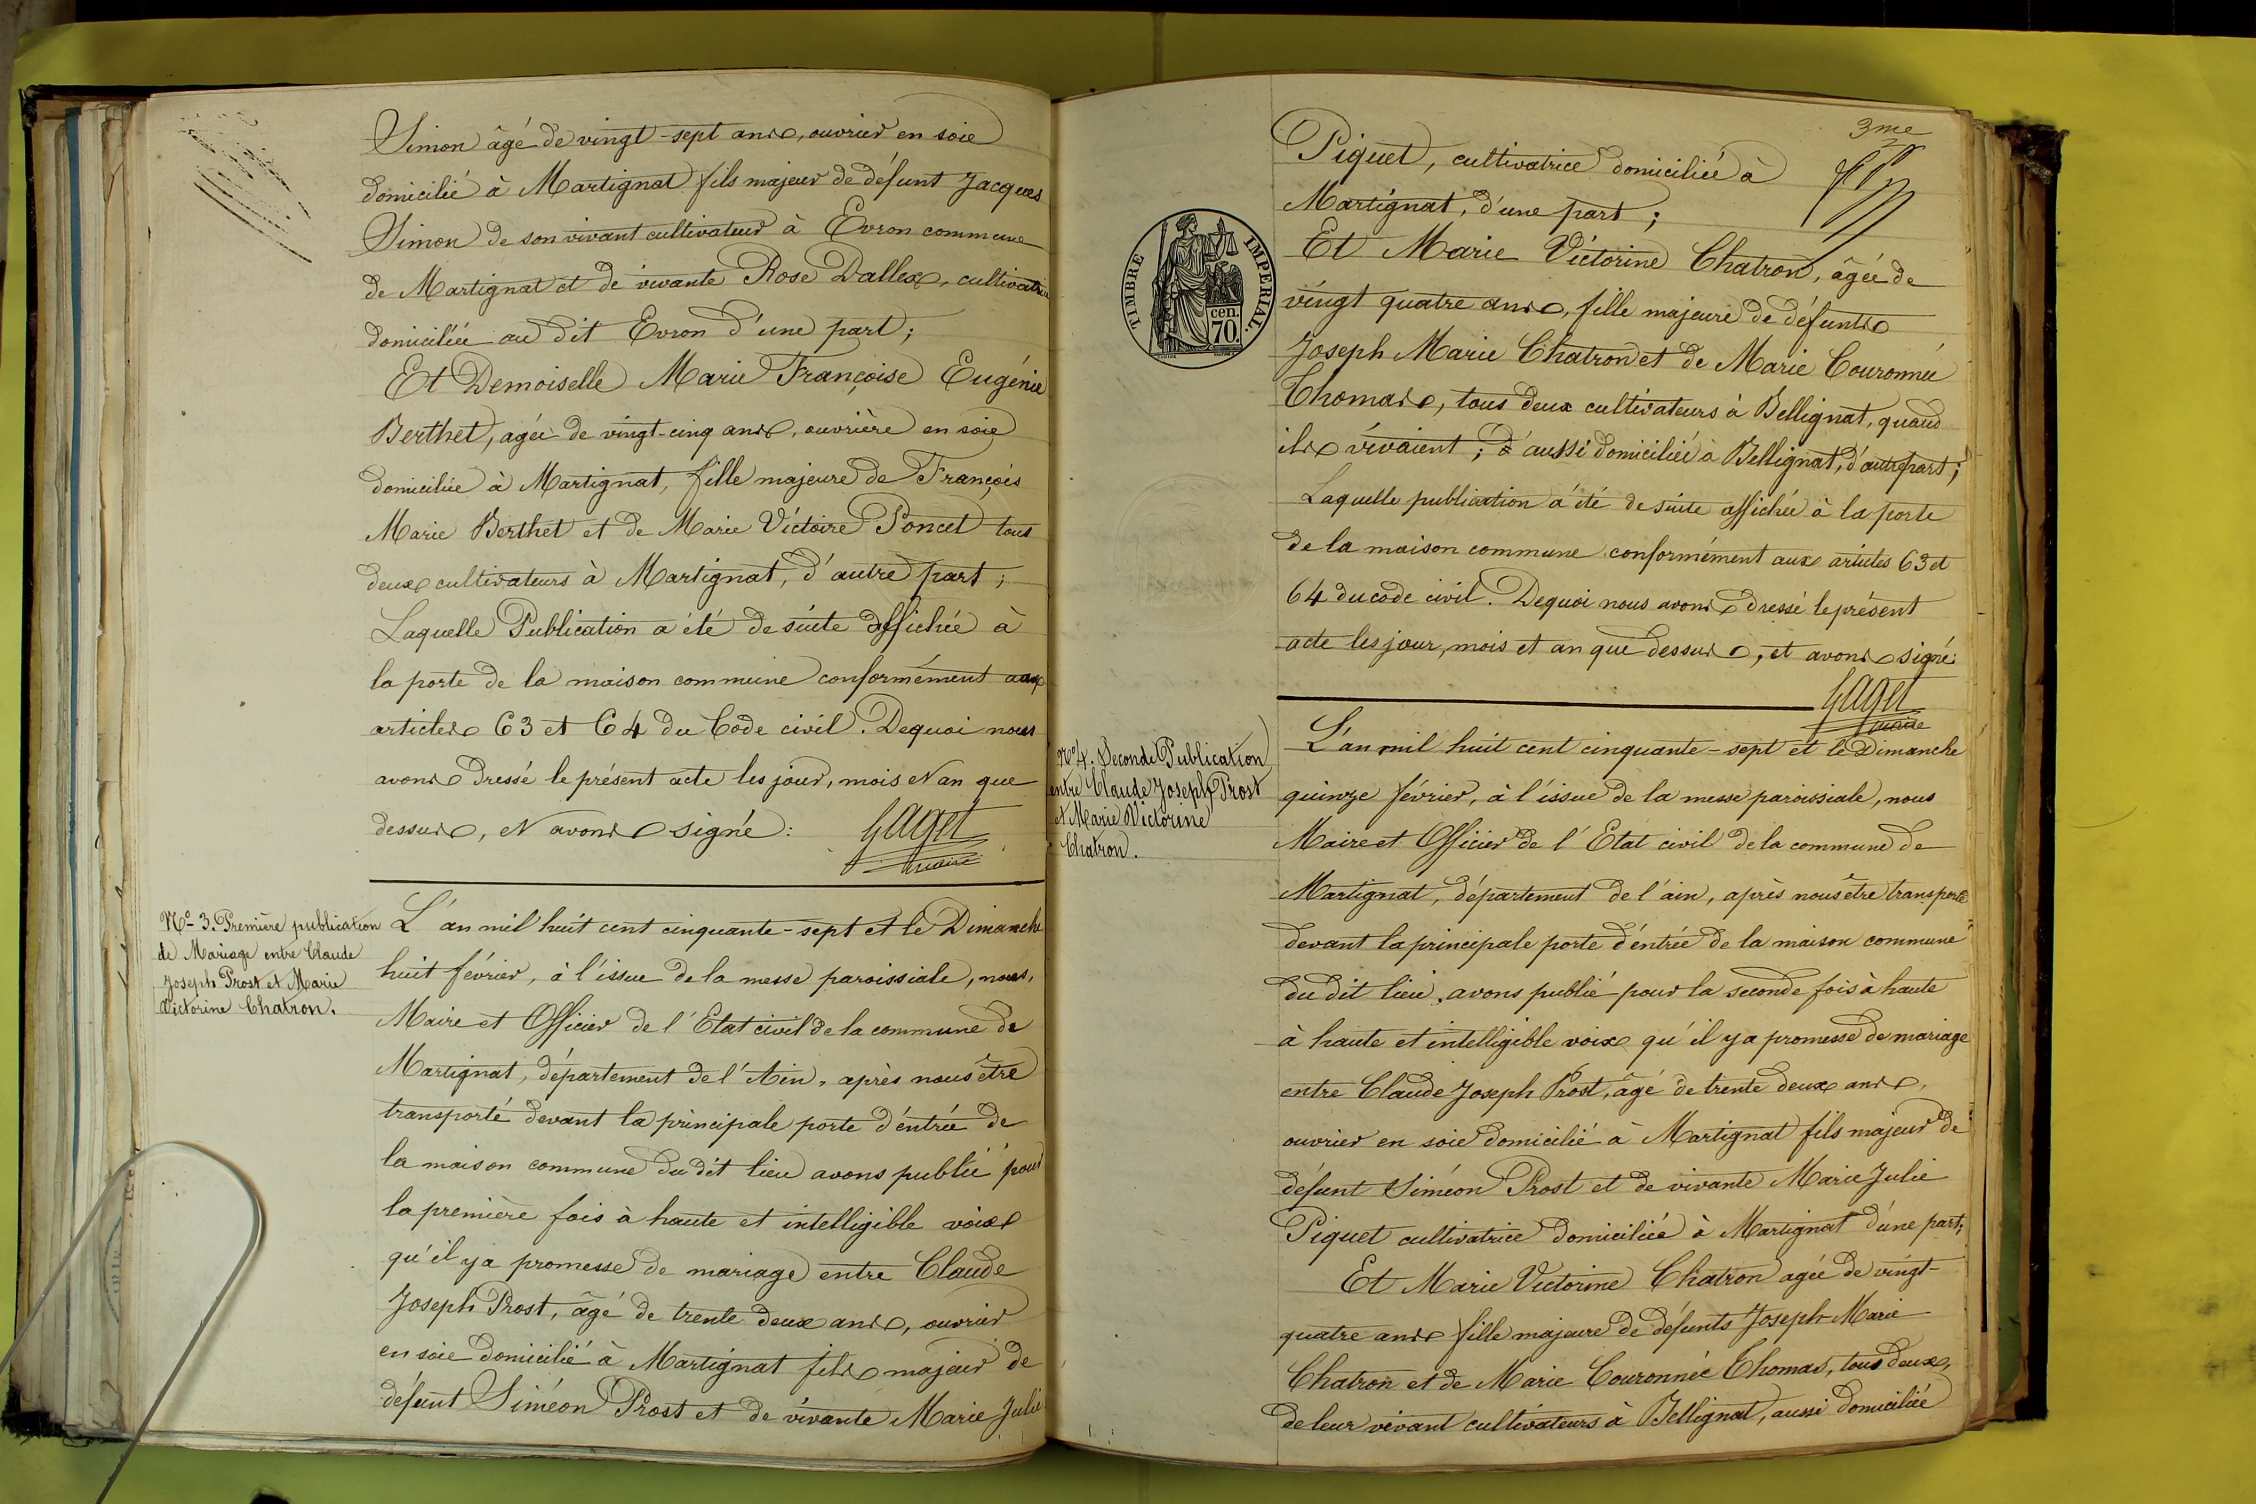 Simon âgé de vingt-sept ans, ouvrier en soie
domicilié à Martignat fils majeur de défunt Jacques
Simon de son vivant cultivateur à Evron commune
de Martignat et de vivante Rose Dallex, cultivatrice
domiciliée au dit Evron d'une part;
Et Demoiselle Marie Françoise Eugénie
Berthet, agée de vingt-cinq ans, ouvrière en soie
domiciliée à Martignat, fille majeure de François
Marie Berthet et de Marie Victoire Poncet tous
deux cultivateurs à Martignat, d'autre part;
Laquelle Publication a été de suite affichée à
la porte de la maison commune conformément aux
articles 63 et 64 du Code civil. Dequoi nous
avons dressé le présent acte les jour, mois et an que
dessus, et avons signé:
Gaget
maire
N° 3. Première publication
de Mariage entre Claude
Joseph Prost et Marie
Victorine Chatron.
L'an mil huit cent cinquante-sept et le Dimanche
huit février, à l'issue de la messe paroissiale, nous,
Maire et Officier de l'Etat civil de la commune de
Martignat, département de l'Ain, après nous être
transporté devant la principale porte d'éntrée de
la maison commune du dit lieu avons publié pour
la première fois à haute et intelligible voix
qu'il y a promesse de mariage entre Claude
Joseph Prost, âgé de trente deux ans, ouvrier
en soie domicilié à Martignat fils majeur de
défunt Siméon Prost et de vivante Marie Julie
3me
Piquet, cultivatrice domiciliée à
Martignat, d'une part;
Et Marie Victorine Chatron, âgée de
vingt quatre ans, fille majeure de défunts
Joseph Marie Chatron et de Marie Couronnée
Thomas, tous deux cultivateurs à Bellignat, quand
ils vivaient; aussi domiciliée à Bellignat, d'autre part;
Laquelle publication a été de suite affichée à la porte
de la maison commune conformément aux articles 63 et
64 du code civil. Dequoi nous avons dressé le présent
acte les jour, mois et an que dessus, et avons signé:
Gaget
maire
TIMBRE IMPERIAL.
cen.
70.
N° 4. Seconde Publication
entre Claude Joseph Prost
et Marie Victorine
Chatron.
L'an mil huit cent cinquante-sept et le Dimanche
quinze février, à l'issue de la messe paroissiale, nous
Maire et Officier de l'Etat civil de la commune de
Martignat, département de l'ain, après nous être transporté
devant la principale porte d'éntrée de la maison commune
du dit lieu, avons publié pour la seconde fois à haute
à haute et intelligible voix qu'il y a promesse de mariage
entre Claude Joseph Prost, âgé de trente deux ans,
ouvrier en soie domicilié à Martignat fils majeur de
défunt Siméon Prost et de vivante Marie Julie
Piquet cultivatrice domiciliée à Martignat d'une part;
Et Marie Victorine Chatron agée de vingt-
quatre ans fille majeure de défunts Joseph-Marie
Chatron et de Marie Couronnée Thomas, tous deux,
de leur vivant cultivateurs à Bellignat, aussi domiciliée